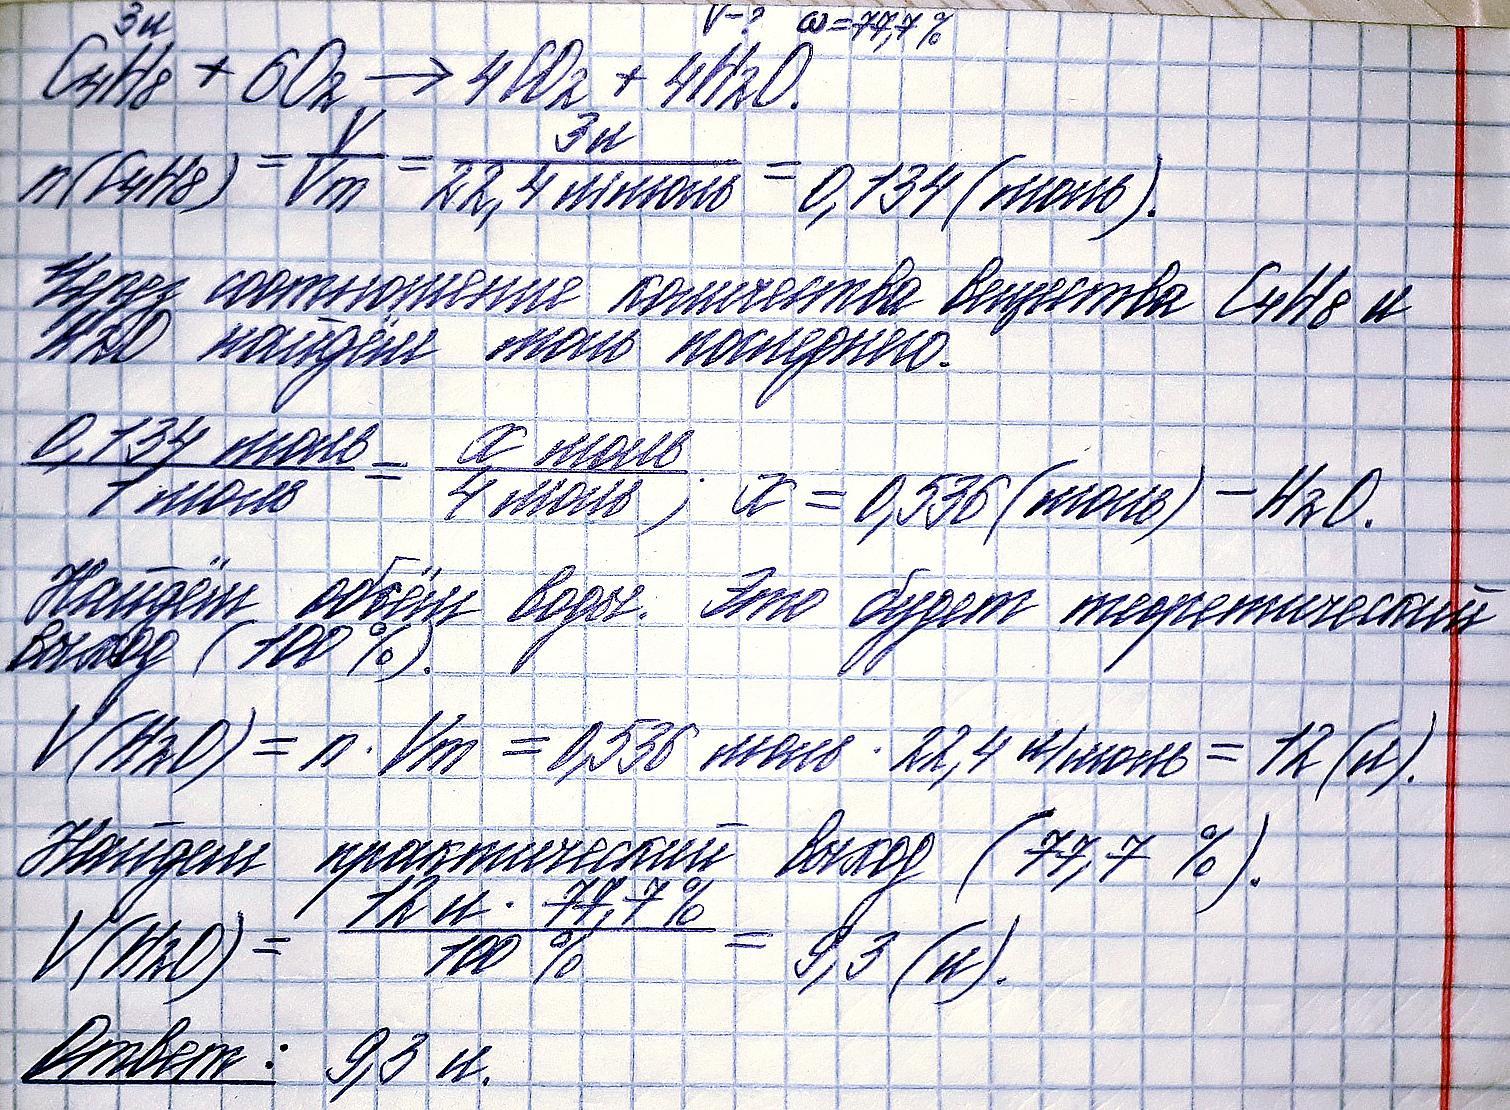 3л V-? ω=77,7%
C4H8 + 6O2 → 4CO2 + 4H2O.
n(C4H8) = V/Vm = 3л/22,4 л/моль = 0,134 (моль).
Через соотношение количества вещества C4H8 и
H2O найдём моль последнего.
0,134 моль/1 моль = x моль/4 моль; x = 0,536 (моль) - H2O.
Найдём объём воды. Это будет теоретический
выход (100%).
V(H2O) = n · Vm = 0,536 моль · 22,4 л/моль = 12 (л).
Найдем практический выход (77,7 %).
V(H2O) = 12 л · 77,7%/100 % = 9,3 (л).
Ответ: 9,3 л.